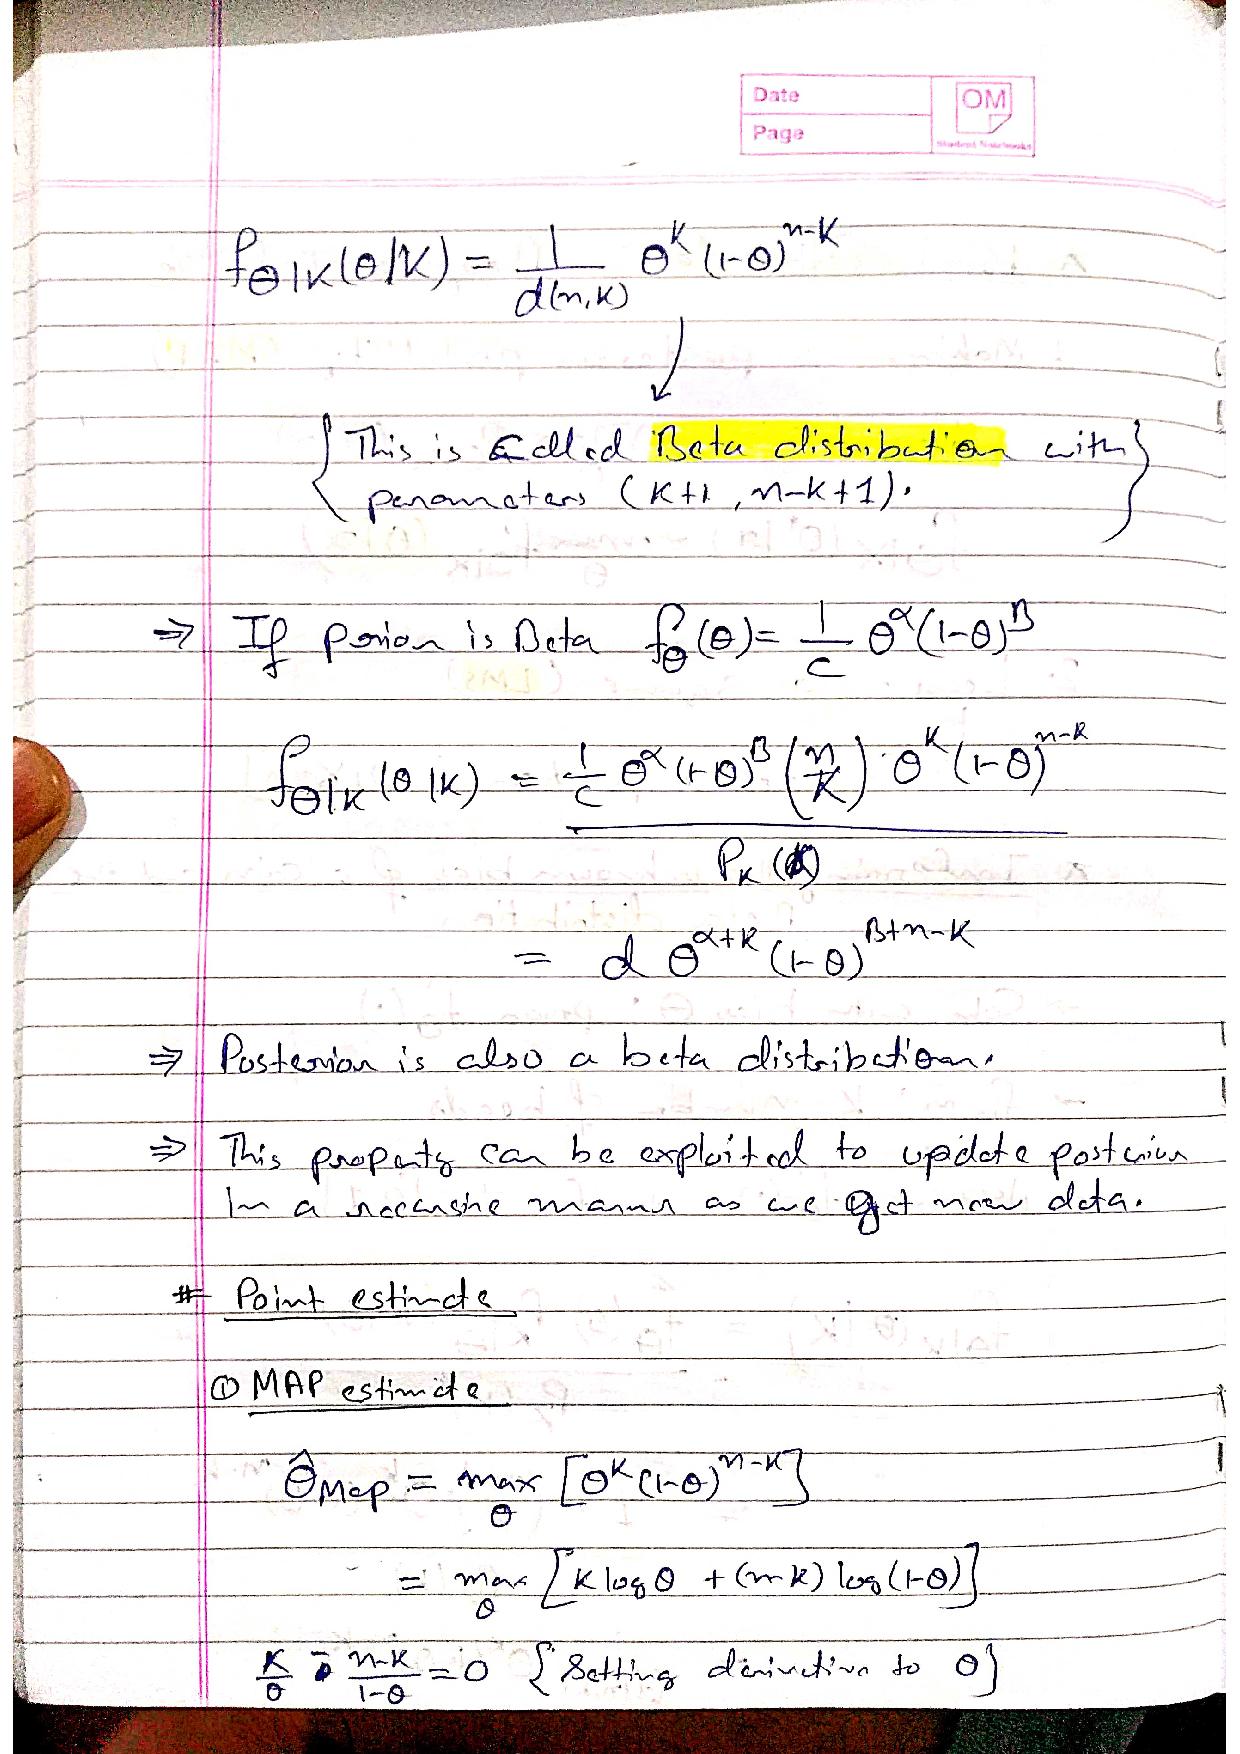 Date
Page
OM
Student Notebooks
f_Θ|K(θ|K) = 1/d(n,K) θ^K (1-θ)^(n-K)
{ This is called Beta distribution with }
parameters (K+1, n-K+1).
⇒ If prior is Beta f_Θ(θ) = 1/c θ^α (1-θ)^β
f_Θ|K(θ|K) = 1/c θ^α (1-θ)^β (n K) · θ^K (1-θ)^(n-K)
P_K(K)
= d θ^(α+K) (1-θ)^(β+n-K)
⇒ Posterior is also a beta distribution.
⇒ This property can be exploited to update posterior
in a recursive manner as we get new data.
# Point estimate
① MAP estimate
θ̂_Map = max_θ [θ^K (1-θ)^(n-K)]
= max_θ [K log θ + (n-K) log(1-θ)]
K/θ - (n-K)/(1-θ) = 0 { Setting derivative to 0 }